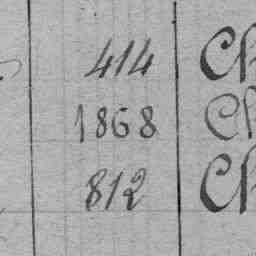 414 Ch
1868 Ch
812 Ch